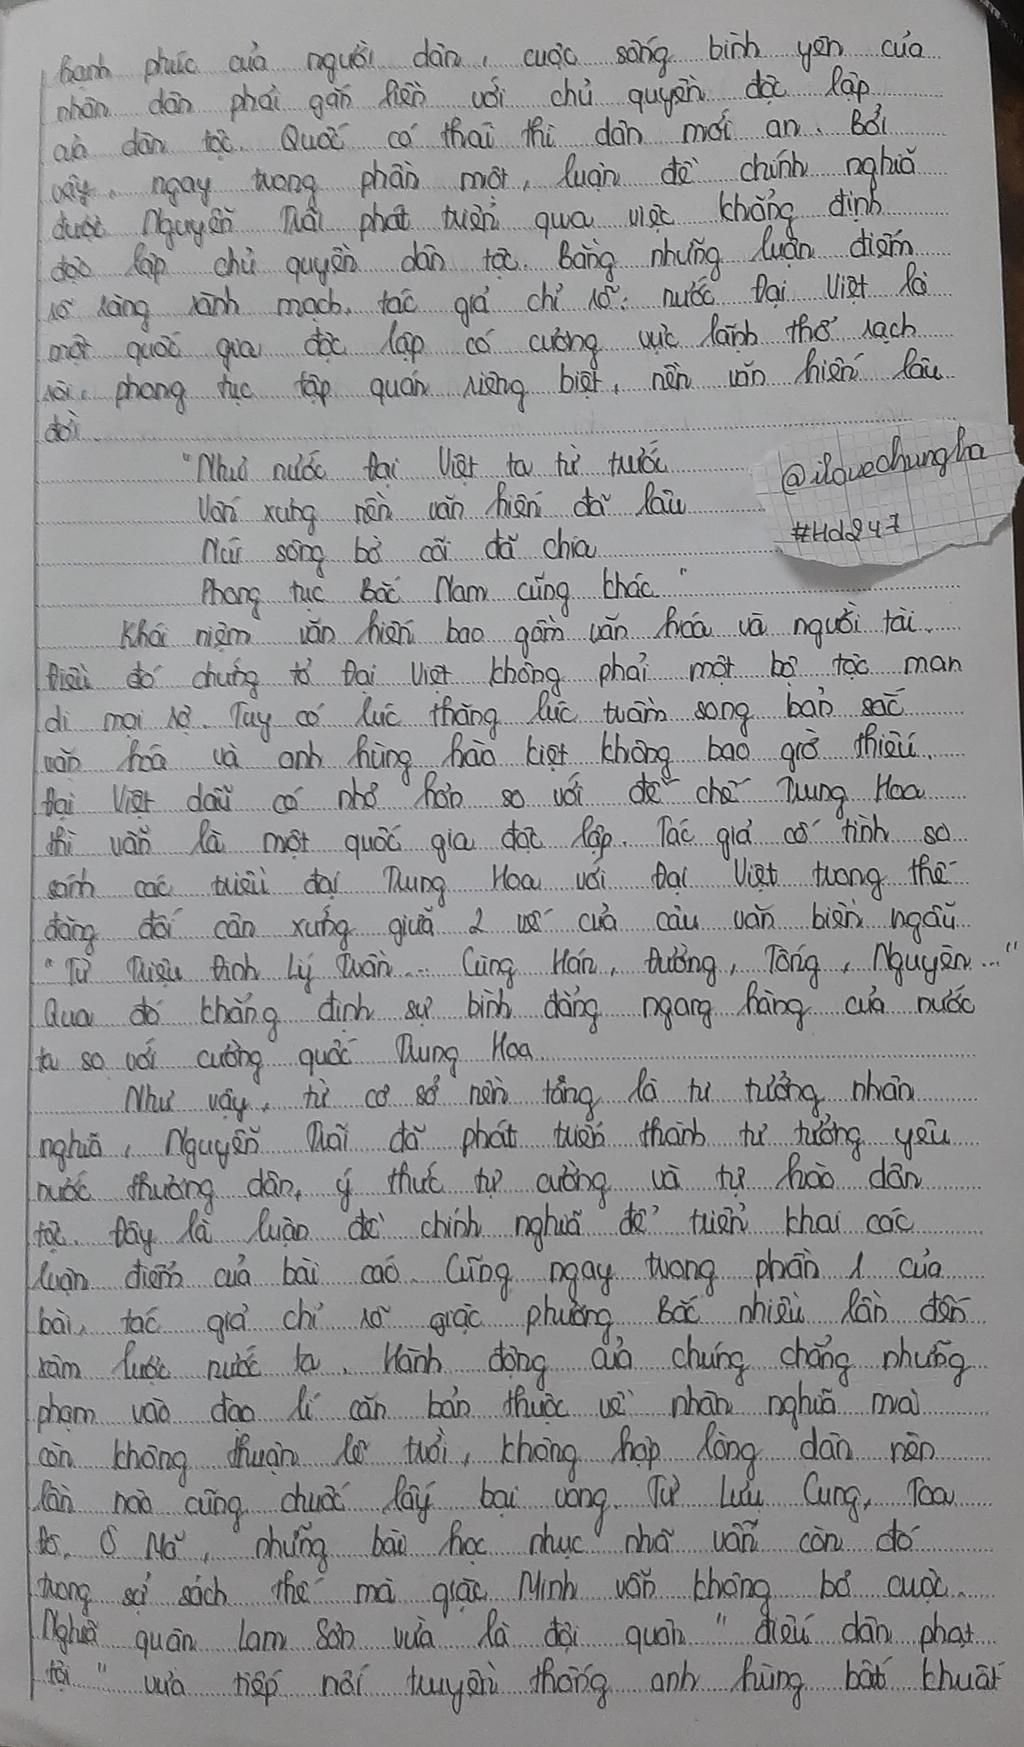 hạnh phúc của người dân, cuộc sống bình yên của
nhân dân phải gắn liền với chủ quyền độc lập
của dân tộc. Quốc có thái thì dân mới an. Bởi
vậy, ngay trong phần một, luận đề chính nghĩa
được Nguyễn Trãi phát triển qua việc khẳng định
độc lập chủ quyền dân tộc. Bằng những luận điểm
rõ ràng rành mạch, tác giả chỉ rõ: nước Đại Việt là
một quốc gia độc lập có cương vực lãnh thổ rạch
ròi, phong tục tập quán riêng biệt, nền văn hiến lâu
đời.
"Như nước Đại Việt ta từ trước
Vốn xưng nền văn hiến đã lâu
Núi sông bờ cõi đã chia
Phong tục Bắc Nam cũng khác"
@ilovechungha
#Hd247
Khái niệm văn hiến bao gồm văn hóa và người tài.
Điều đó chứng tỏ Đại Việt không phải một bộ tộc man
di mọi rợ. Tuy có lúc thăng lúc trầm song bản sắc
văn hóa và anh hùng hào kiệt không bao giờ thiếu.
Đại Việt dẫu có nhỏ hơn so với đế chế Trung Hoa
thì vẫn là một quốc gia độc lập. Tác giả cố tình so
sánh các triều đại Trung Hoa với Đại Việt trong thế
đăng đối cân xứng giữa 2 vế của câu văn biền ngẫu.
"Từ Triệu Đinh Lý Trần... Cùng Hán, Đường, Tống, Nguyên..."
Qua đó khẳng định sự bình đẳng ngang hàng của nước
ta so với cường quốc Trung Hoa
Như vậy, từ cơ sở nền tảng là tư tưởng nhân
nghĩa, Nguyễn Trãi đã phát triển thành tư tưởng yêu
nước thương dân, ý thức tự cường và tự hào dân
tộc. Đây là luận đề chính nghĩa để triển khai các
luận điểm của bài cáo. Cũng ngay trong phần 1 của
bài, tác giả chỉ rõ giặc phương Bắc nhiều lần đến
xâm lược nước ta. Hành động của chúng chẳng những
phạm vào đạo lí căn bản thuộc về nhân nghĩa mà
còn không thuận lẽ trời, không hợp lòng dân nên
lần nào cũng chuốc lấy bại vong. Từ Lưu Cung, Toa
Đô, Ô Mã, những bài học nhục nhã vẫn còn đó
trong sử sách thế mà giặc Minh vẫn không bỏ cuộc.
Nghĩa quân Lam Sơn vừa là đội quân "điếu dân phạt
tội" vừa tiếp nối truyền thống anh hùng bất khuất